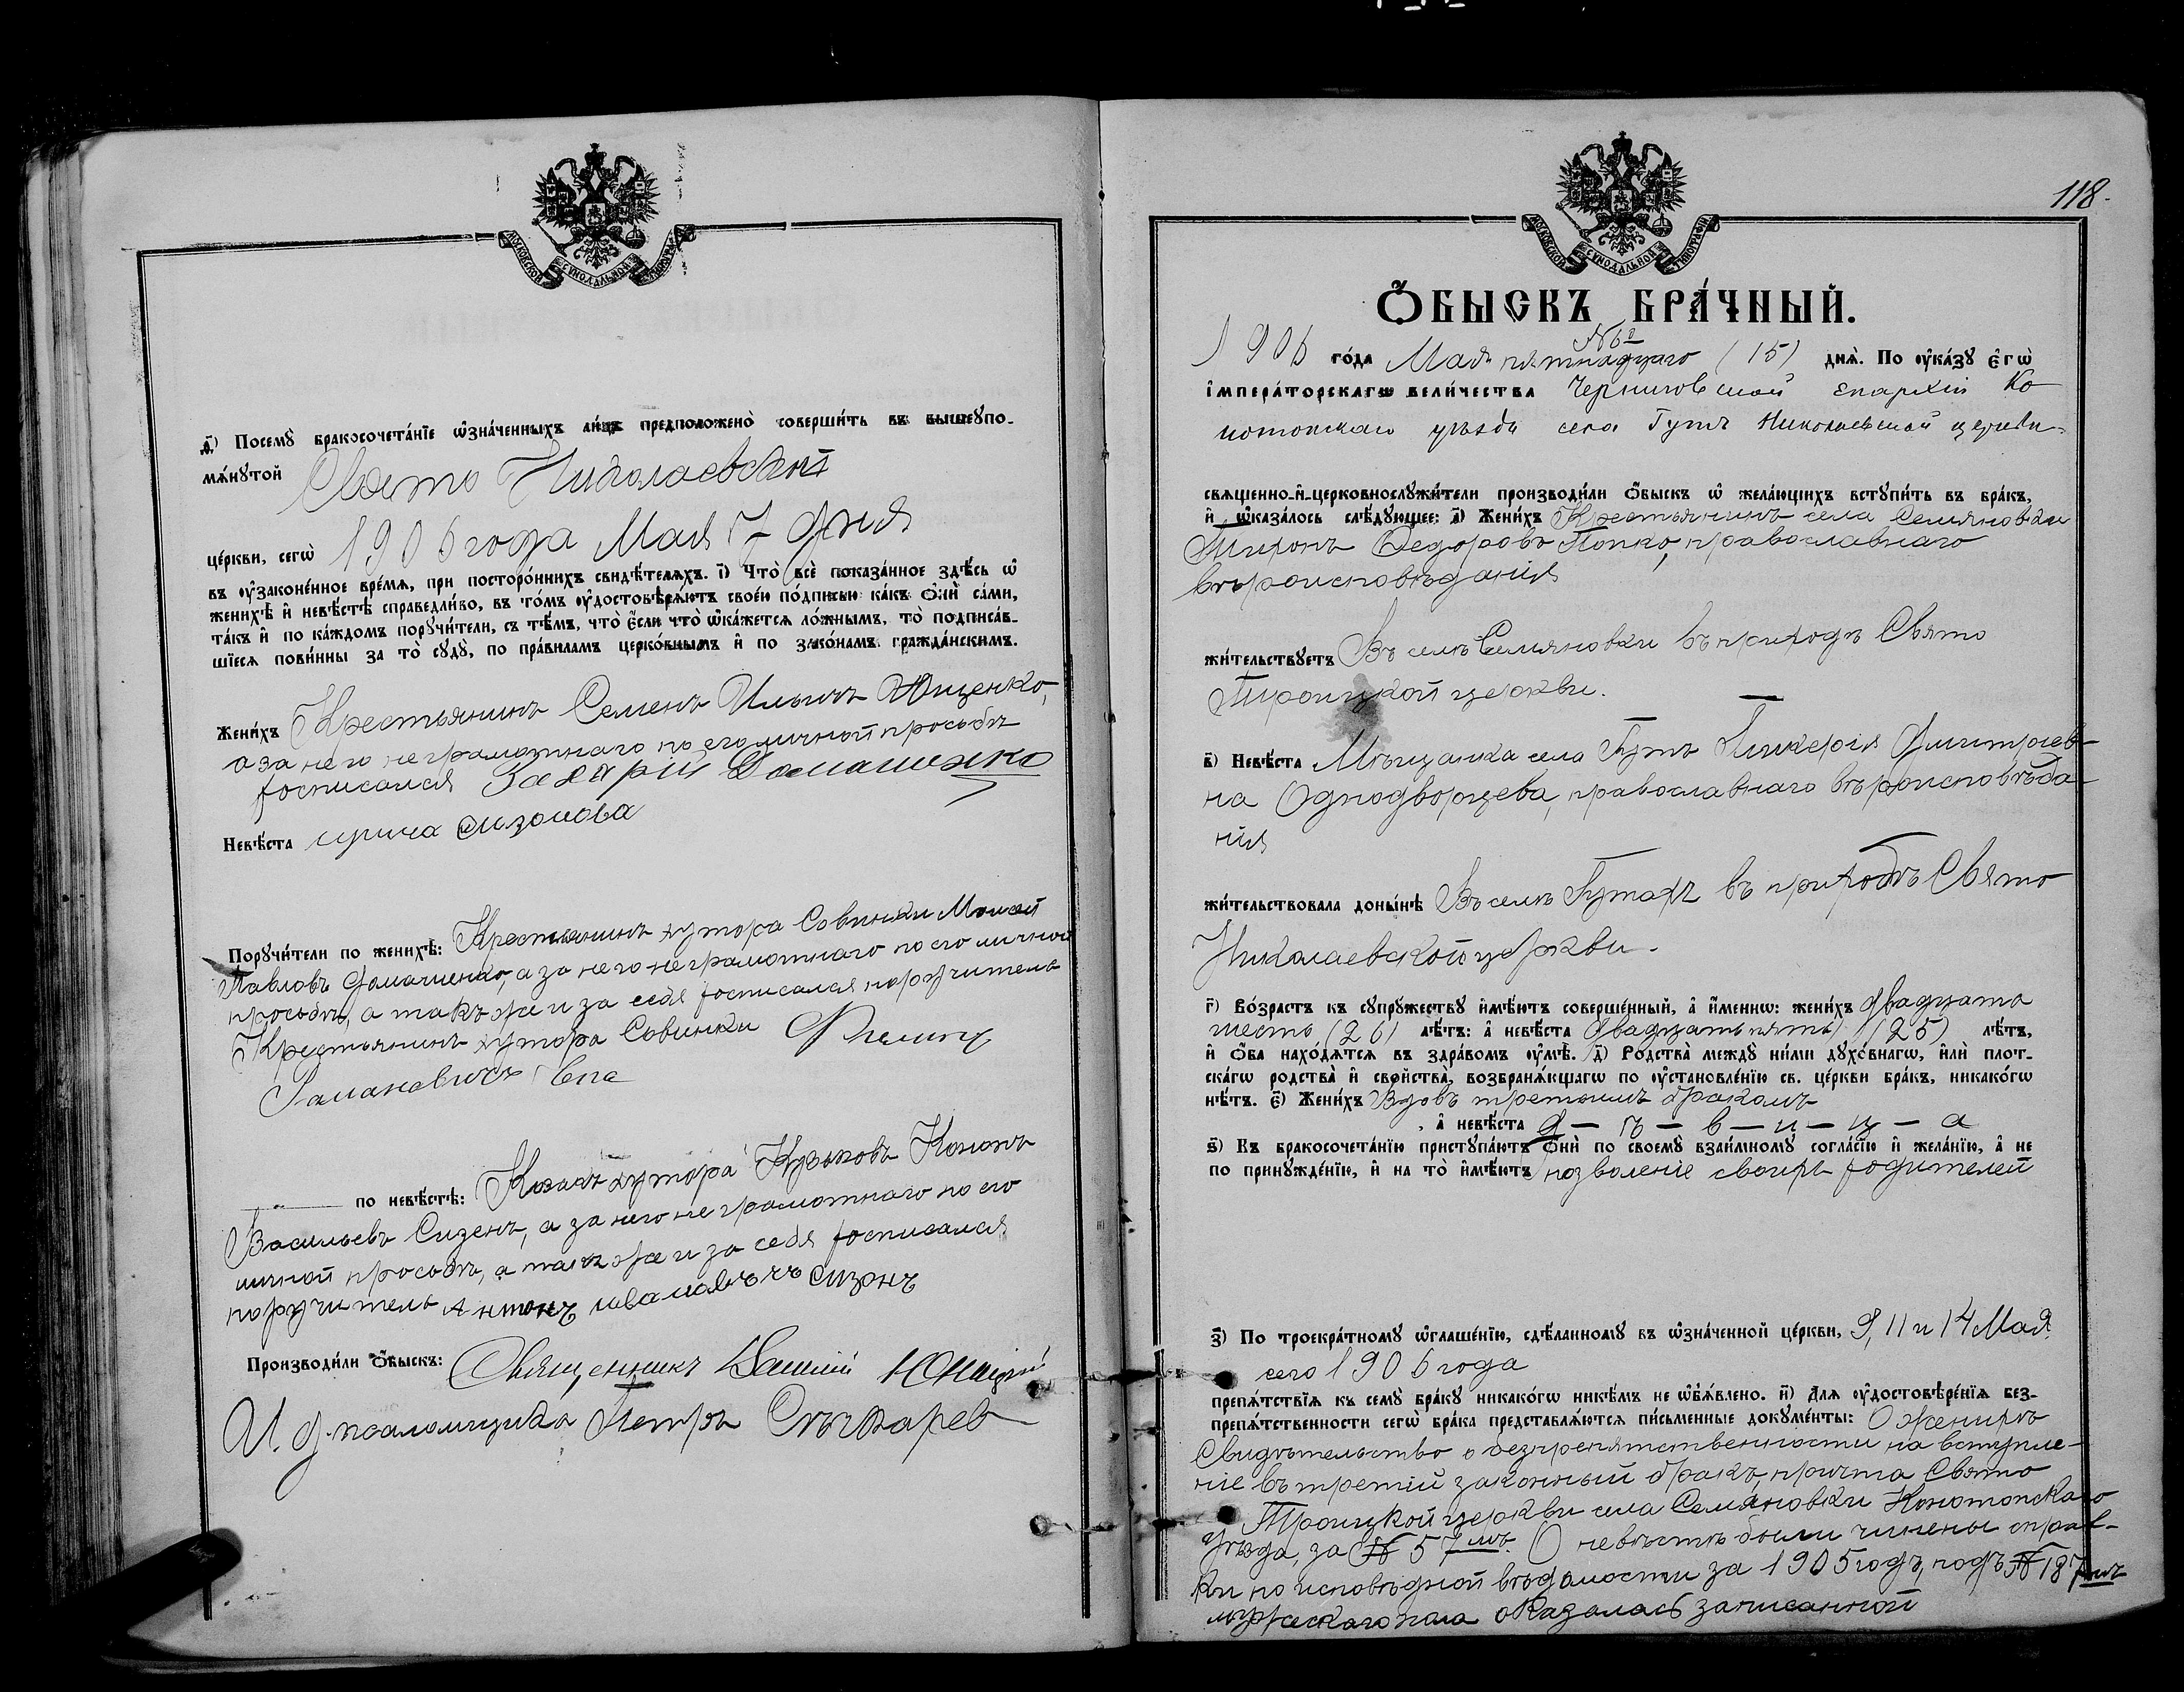 МОСКОВСКОЙ СѴНОДАЛЬНОЙ ТИПОГРАФІИ
д҃) Посемꙋ̀ бракосочета́нїе ѡ҆зна́ченныхъ ли́цъ предположено̀ соверши́ть въ вышеꙋпо-
мѧ́нꙋтой Свято Николаевской
це́ркви, сегѡ̀ 1906 года Мая 7 дня
въ ᲂу҆законе́нное вре́мѧ, при посторо́ннихъ свидѣ́телѧхъ. і҃) Что̀ всѐ пока́занное здѣ́сь ѡ҆
женихѣ̀ и҆ невѣ́стѣ справедли́во, въ то́мъ ᲂу҆достовѣрѧ́ютъ свое́ю по́дписью ка́къ ѻ҆нѝ са́ми,
та́къ и҆ по ка́ждомъ порꙋчи́тели, съ тѣ́мъ, что̀ є҆́сли что̀ ѡ҆ка́жетсѧ ло́жнымъ, то̀ подписа́в-
шїесѧ пови́нны за то̀ сꙋдꙋ̀, по пра́виламъ церко́внымъ и҆ по зако́намъ гражда́нскимъ.
Жени́хъ Крестьянинъ Семенъ Ильичъ Ющенко,
а за него неграмотнаго по его личной просьбѣ
росписался Захарій Домашенко
Невѣ́ста Сизонова
Порꙋчи́тели по женихѣ̀: Крестьянинъ хутора Совинки Моисей
Павловъ Домашенко, а за него неграмотнаго по его личной
просьбѣ, а также и за себя росписался поручитель
Крестьянинъ хутора Совинки Филипъ
Романовичъ
по невѣ́стѣ: Козакъ хутора Кузьковъ Кононъ
Васильевъ Сизенъ, а за него не грамотнаго по его
личной просьбѣ, а также и за себя росписался
поручитель Антонъ Сизонъ
Производи́ли ѻ҆́быскъ: Священникъ
И. д. псаломщика Петръ
118.
МОСКОВСКОЙ СѴНОДАЛЬНОЙ ТИПОГРАФІИ
Ѻ҆́БЫСКЪ БРА́ЧНЫЙ.
1906 го́да Мая пятнадцаго (15) днѧ̀. По ᲂу҆ка́зꙋ є҆гѡ̀
і҆мпера́торскагѡ вели́чества Черниговской епархіи Ко
нотопскаго уѣзда села Гутъ Николаевской церкви
свѧще́нно-и҆-церковнослꙋжи́тели производи́ли ѻ҆́быскъ ѡ҆ жела́ющихъ встꙋпи́ть въ бра́къ,
и҆ ѡ҆каза́лось слѣ́дꙋющее: а҃) Жени́хъ Крестьянинъ села Семяновки
Федоровъ Попко, православнаго
вѣроисповѣданія
жи́тельствꙋетъ Въ селѣ Семяновки въ приходѣ Свято
Троицкой церкви.
в҃) Невѣ́ста Мѣщанка села Гутъ Гликерія Дмитріев-
на Однодворцева, православнаго вѣроисповѣда-
нія
жи́тельствовала доны́нѣ Въ селѣ Гутахъ въ приходѣ Свято
Николаевской церкви.
г҃) Во́зрастъ къ сꙋпрꙋ́жествꙋ и҆мѣ́ютъ соверше́нный, а҆ и҆́менно: жени́хъ двадцати
шесть (26) лѣ́тъ: а҆ невѣ́ста двадцать пять (25) лѣ́тъ,
и҆ ѻ҆́ба нахо́дѧтсѧ въ здра́вомъ ᲂу҆мѣ̀. д҃) Родства̀ междꙋ̀ ни́ми дꙋхо́внагѡ, и҆лѝ пло́т-
скагѡ родства̀ и҆ сво́йства̀, возбранѧ́ющагѡ по ᲂу҆становле́нїю св. це́ркви бра́къ, никако́гѡ
нѣ́тъ. є҃) Жени́хъ Вдовъ третьимъ бракомъ
а҆ невѣ́ста д-ѣ-в-и-ц-а
ѕ҃) Къ бракосочета́нїю пристꙋпа́ютъ ѻ҆нѝ по своемꙋ̀ взаи́мномꙋ согла́сїю и҆ жела́нїю, а҆ не
по принꙋжде́нїю, и҆ на то̀ и҆мѣ́ютъ позволеніе своихъ родителей
з҃) По троекра́тномꙋ ѡ҆глаше́нїю, сдѣ́ланномꙋ въ ѡ҆зна́ченной це́ркви, 9, 11 и 14 Мая
сего 1906 года
препѧ́тствїѧ къ семꙋ̀ бра́кꙋ никако́гѡ никѣ́мъ не ѡ҆б̾ѧ́влено. и҃) Длѧ ᲂу҆достовѣре́нїѧ без-
препѧ́тственности сегѡ̀ бра́ка представлѧ́ютсѧ пи́сьменные докꙋме́нты: О женихѣ
Свидѣтельство о безпрепятственности на вступле-
ніе въ третій законный бракъ, причта Свято
Троицкой церкви села Семяновки Конотопскаго
уѣзда, за № 57мъ. О невѣстѣ были чинены справ-
ки по исповѣдной вѣдомости за 1905 годъ, подъ № 187мъ
мужескаго пола оказалась записанной